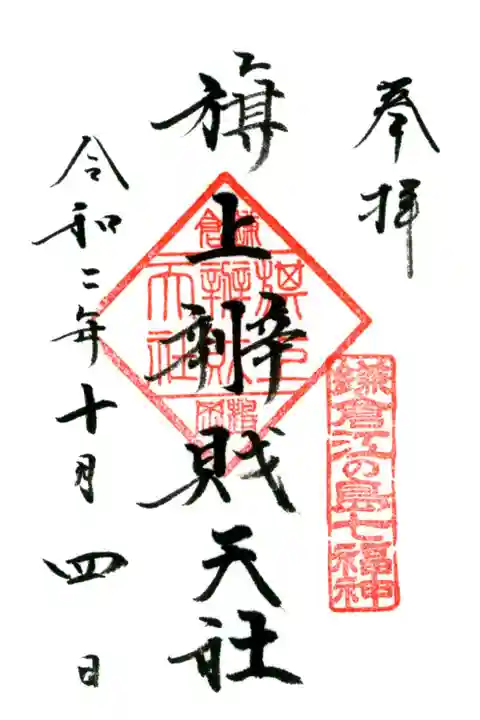 奉拝
鎌倉江の島七福神
旗上辨財天社
令和二年十月四日